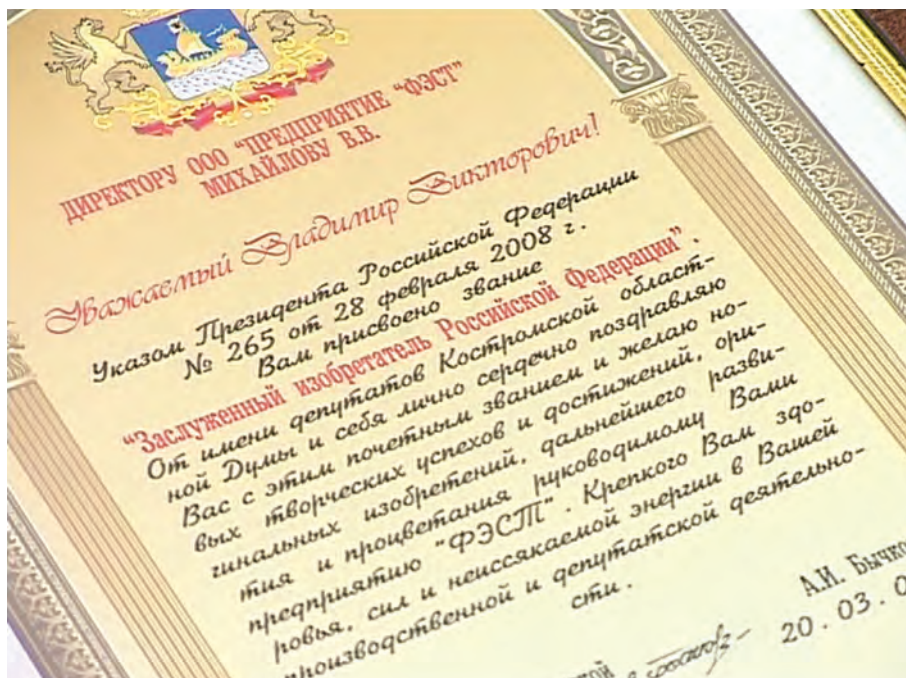 ДИРЕКТОРУ ООО "ПРЕДПРИЯТИЕ "ФЭСТ"
МИХАЙЛОВУ В.В.
Уважаемый Владимир Викторович!
Указом Президента Российской Федерации
№ 265 от 28 февраля 2008 г.
Вам присвоено звание
"Заслуженный изобретатель Российской Федерации".
От имени депутатов Костромской област-
ной Думы и себя лично сердечно поздравляю
Вас с этим почетным званием и желаю но-
вых творческих успехов и достижений, ори-
гинальных изобретений, дальнейшего разви-
тия и процветания руководимому Вами
предприятию "ФЭСТ". Крепкого Вам здо-
ровья, сил и неиссякаемой энергии в Вашей
производственной и депутатской деятельно-
сти.
А.И.
20.03.0